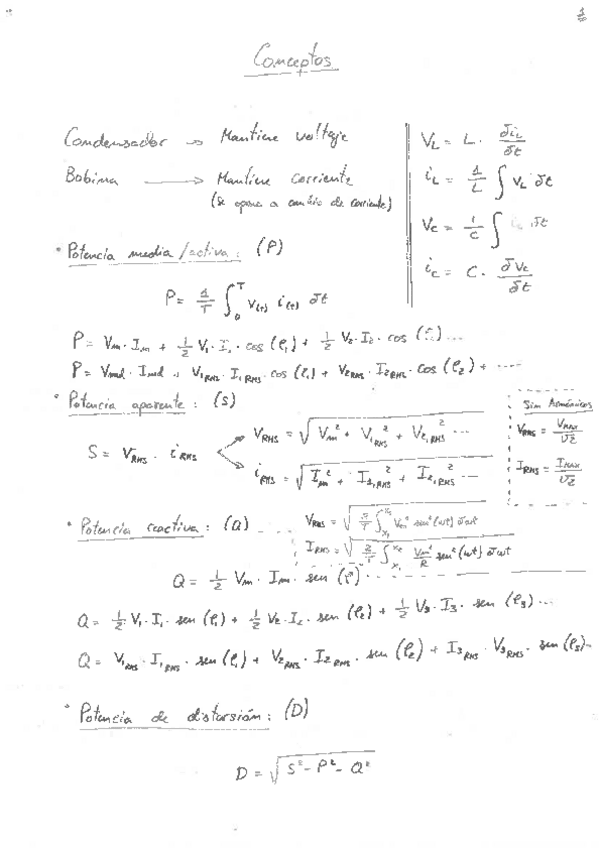 Conceptos
Condensador → Mantiene voltaje
Bobina → Mantiene corriente
(Se opone a cambio de corriente)
V_L = L · δi_L/δt
i_L = 1/L ∫ V_L δt
V_C = 1/C ∫ i_C δt
i_C = C · δV_C/δt
• Potencia media/activa: (P)
P = 1/T ∫₀ᵀ v(t) i(t) δt
P = Vm · Im + 1/2 V₁ · I₁ · cos(φ₁) + 1/2 V₂ · I₂ · cos(φ₂) ...
P = Vmd · Imd + V₁RMS · I₁RMS · cos(φ₁) + V₂RMS · I₂RMS · cos(φ₂) + ...
• Potencia aparente: (S)
S = V_RMS · i_RMS
V_RMS = √(Vm² + V₁,RMS² + V₂,RMS² ...)
i_RMS = √(Im² + I₁,RMS² + I₂,RMS² ...)
Sin Armónicos
V_RMS = V_MAX/√2
I_RMS = I_MAX/√2
• Potencia reactiva: (Q)
V_RMS = √(2/T ∫_{x₁}^{x₂} Vm² sen²(wt) δwt)
I_RMS = √(2/T ∫_{x₁}^{x₂} Vm²/R sen²(wt) δwt)
Q = 1/2 Vm · Im · sen(φ) ...
Q = 1/2 · V₁ · I₁ · sen(φ₁) + 1/2 V₂ · I₂ · sen(φ₂) + 1/2 V₃ · I₃ · sen(φ₃) ...
Q = V₁RMS · I₁RMS · sen(φ₁) + V₂RMS · I₂RMS · sen(φ₂) + I₃RMS · V₃RMS · sen(φ₃) ...
• Potencia de distorsión: (D)
D = √(S² - P² - Q²)